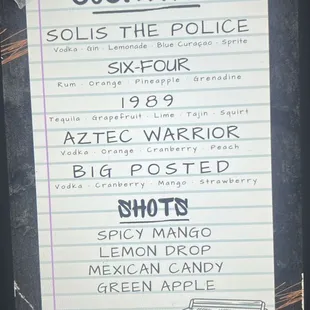 SOLIS THE POLICE
Vodka - Gin - Lemonade - Blue Curaçao - Sprite
SIX-FOUR
Rum - Orange - Pineapple - Grenadine
1989
Tequila - Grapefruit - Lime - Tajin - Squirt
AZTEC WARRIOR
Vodka - Orange - Cranberry - Peach
BIG POSTED
Vodka - Cranberry - Mango - Strawberry
SHOTS
SPICY MANGO
LEMON DROP
MEXICAN CANDY
GREEN APPLE